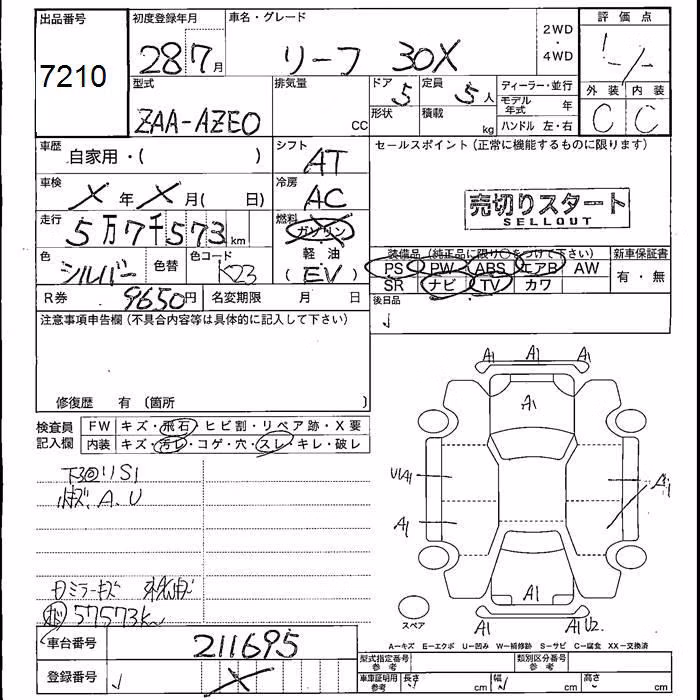 出品番号
7210
初度登録年月
28 7月
車名・グレード
リーフ 30X
2WD
・
4WD
評価点
外装 内装
C C
型式
ZAA-AZE0
排気量
CC
ドア
5
形状
定員
5人
積載
kg
ディーラー・並行
モデル年式 年
ハンドル 左・右
車歴
自家用・( )
車検
X 年 X 月( 日)
走行
5万7千573km
色
シルバー
色替
色コード
K23
シフト
AT
冷房
AC
燃料
ガソリン
軽・油
(EV)
R券 9650円
名変期限 月 日
セールスポイント(正常に機能するものに限ります)
売切りスタート
SELLOUT
装備品(純正品に限り○をつけて下さい)
PS PW ABS エアB AW
SR ナビ TV カワ
新車保証書
有・無
後日品
注意事項申告欄(不具合内容等は具体的に記入して下さい)
修復歴 有〔箇所 〕
検査員
記入欄
FW キズ・飛石・ヒビ割・リペア跡・X要
内装 キズ・汚レ・コゲ・穴・スレ・キレ・破レ
下回リS1
A、U
ミラーキズ
57573km
A1 A1 A1
A1
UA1
A1
A1
A1
A1 A1 U2
スペア
A=キズ E=エクボ U=凹み W=補修跡 S=サビ C=腐食 XX=交換済
車台番号
211695
登録番号
X
型式指定番号
参考
類別区分番号
参考
車庫証明用
参考
長さ cm
幅 cm
高さ cm